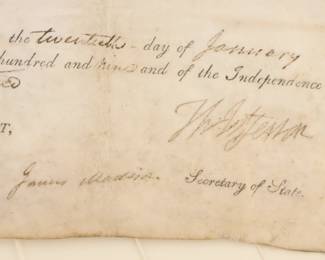 the twentieth - day of January
hundred and nine and of the Independence
T,
Th Jefferson
James Madison. Secretary of State.